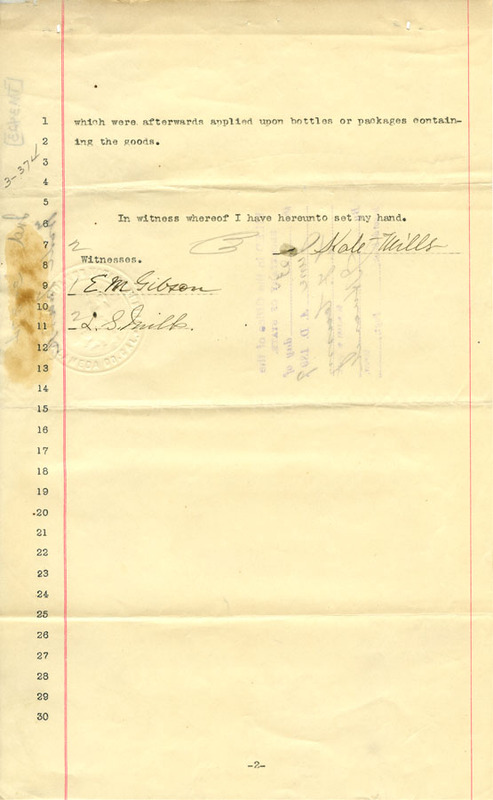 3-374
1 which were afterwards applied upon bottles or packages contain-
2 ing the goods.
3
4
5
6 In witness whereof I have hereunto set my hand.
7 Kate Mills
8 Witnesses.
9 1 E. M. Gibson
10
11 2 L. S. Mills.
12
13
14
15
16
17
18
19
20
21
22
23
24
25
26
27
28
29
30
-2-